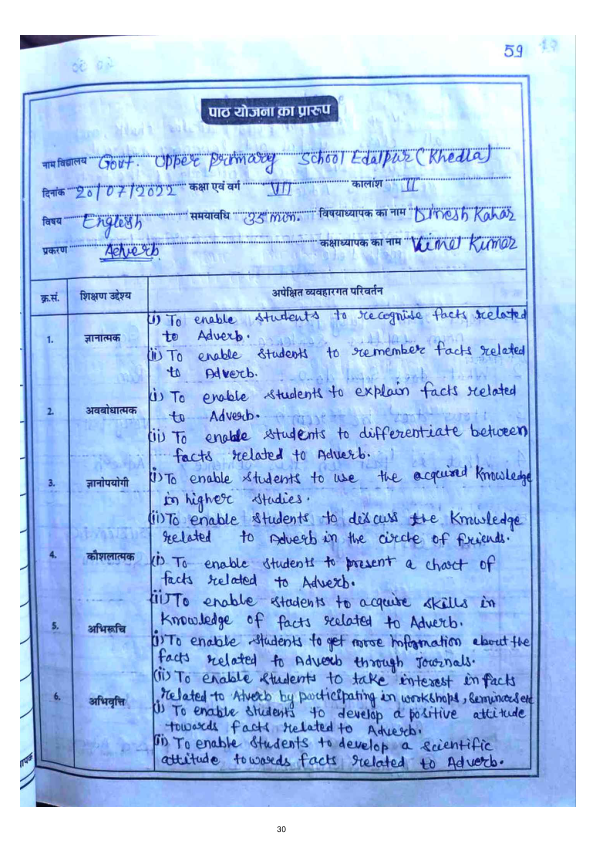 59
पाठ योजना का प्रारूप
नाम विद्यालय Govt. Upper primary School Edalpur (Khedla)
दिनांक 20/07/2022 कक्षा एवं वर्ग VII कालांश II
विषय English समयावधि 35 min. विषयाध्यापक का नाम Dinesh Kahar
प्रकरण Adverb कक्षाध्यापक का नाम Vimal Kumar
क्र.सं. शिक्षण उद्देश्य अपेक्षित व्यवहारगत परिवर्तन
(i) To enable students to recognise facts related
1. ज्ञानात्मक to Adverb.
(ii) To enable students to remember facts related
to Adverb.
(i) To enable students to explain facts related
2. अवबोधात्मक to Adverb.
(ii) To enable students to differentiate between
facts related to Adverb.
3. ज्ञानोपयोगी (i) To enable students to use the acquired Knowledge
in higher studies.
(ii) To enable students to discuss the Knowledge
related to Adverb in the circle of friends.
4. कौशलात्मक (i) To enable students to present a chart of
facts related to Adverb.
(ii) To enable students to acquire skills in
5. अभिरूचि Knowledge of facts related to Adverb.
(i) To enable students to get more information about the
facts related to Adverb through Journals.
(ii) To enable students to take interest in facts
6. अभिवृत्ति related to Adverb by participating in workshops, seminars etc
(i) To enable students to develop a positive attitude
towards facts related to Adverb.
(ii) To enable students to develop a scientific
attitude towards facts related to Adverb.
30